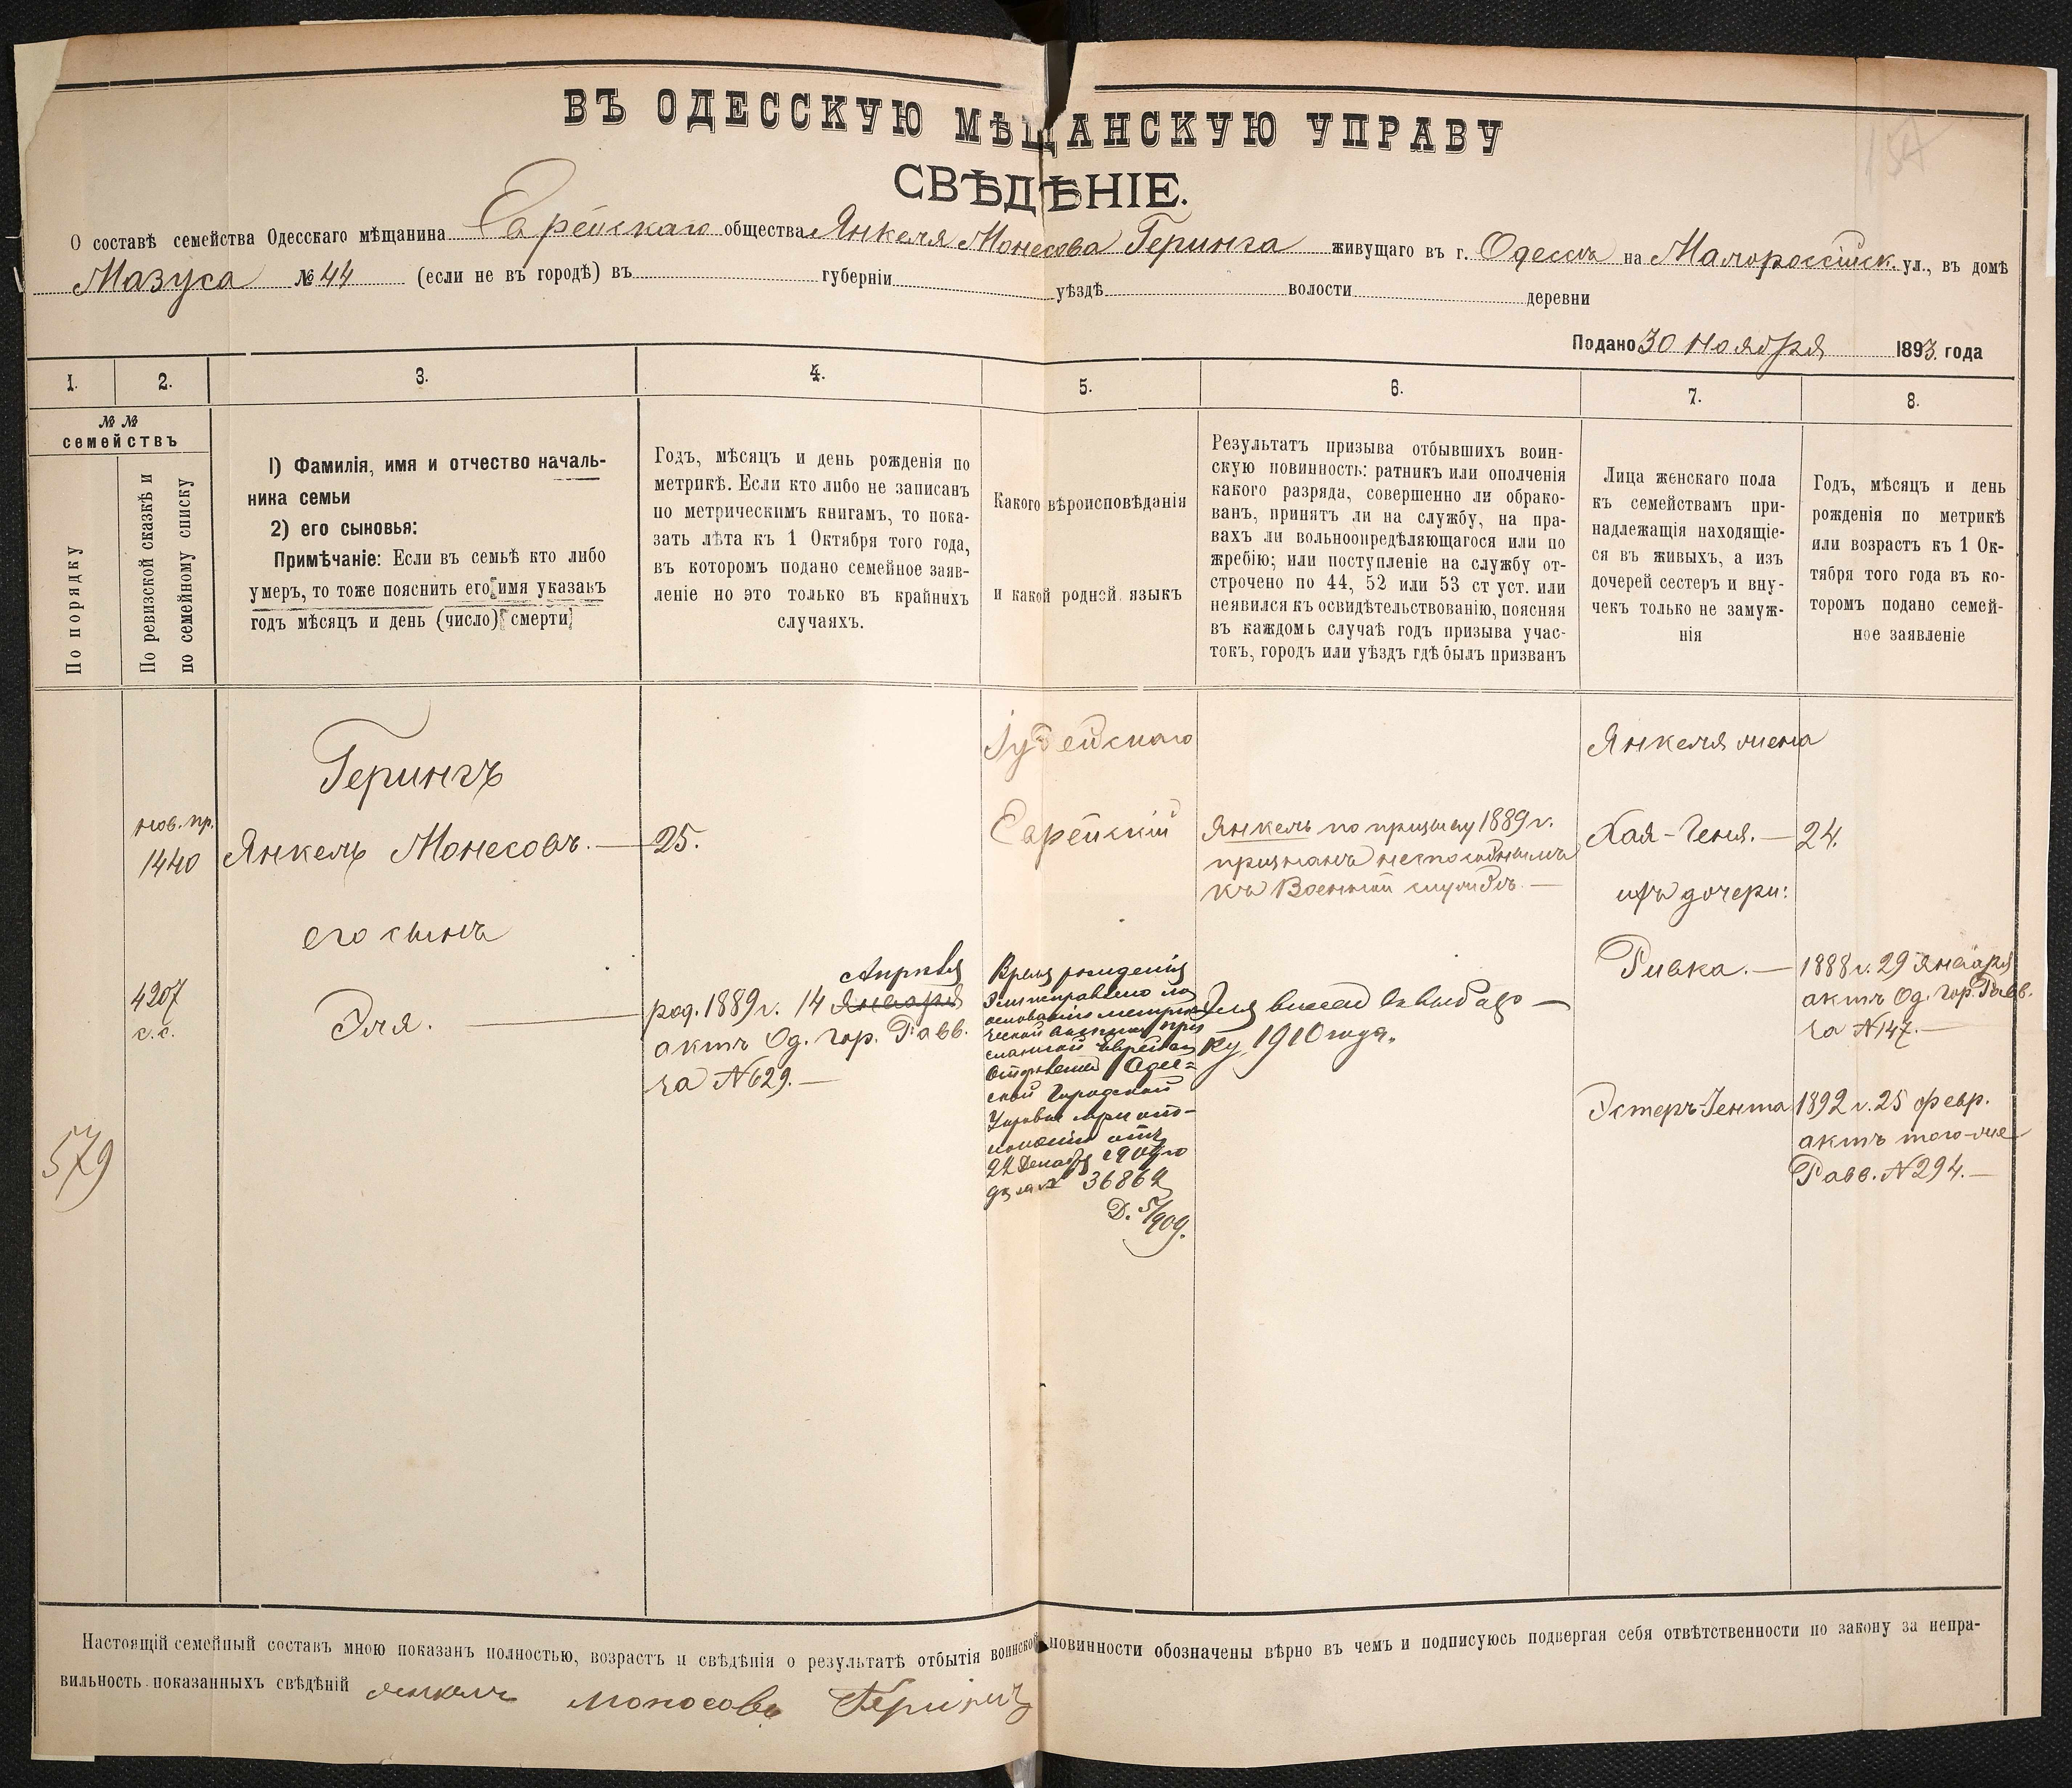 ВЪ ОДЕССКУЮ МѢЩАНСКУЮ УПРАВУ
СВѢДѢНІЕ.
О составѣ семейства Одесскаго мѣщанина Еврейскаго общества Янкеля Монесова Геринга живущаго въ г. Одессѣ на Малороссійск. ул., въ домѣ
Мазуса № 44 (если не въ городѣ) въ губерніи уѣздѣ волости деревни
Подано 30 Ноября 1893. года
1. 2. 3. 4. 5. 6. 7. 8.
№ №
семействъ
По порядку
По ревизской сказкѣ и
по семейному списку
1) Фамилія, имя и отчество началь-
ника семьи
2) его сыновья:
Примѣчаніе: Если въ семьѣ кто либо
умеръ, то тоже пояснить его имя указавъ
годъ мѣсяцъ и день (число) смерти
Годъ, мѣсяцъ и день рожденія по
метрикѣ. Если кто либо не записанъ
по метрическимъ книгамъ, то пока-
зать лѣта къ 1 Октября того года,
въ которомъ подано семейное заяв-
леніе но это только въ крайнихъ
случаяхъ.
Какого вѣроисповѣданія
и какой родной языкъ
Результатъ призыва отбывшихъ воин-
скую повинность: ратникъ или ополченія
какого разряда, совершенно ли обрако-
ванъ, принятъ ли на службу, на пра-
вахъ ли вольноопредѣляющагося или по
жребію; или поступленіе на службу от-
строчено по 44, 52 или 53 ст уст. или
неявился къ освидѣтельствованію, поясняя
въ каждомъ случаѣ годъ призыва учас-
токъ, городъ или уѣздъ гдѣ былъ призванъ
Лица женскаго пола
къ семействамъ при-
надлежащія находящіе-
ся въ живыхъ, а изъ
дочерей сестеръ и вну-
чекъ только не замуж-
нія
Годъ, мѣсяцъ и день
рожденія по метрикѣ
или возрастъ къ 1 Ок-
тября того года въ ко-
торомъ подано семей-
ное заявленіе
579
нов. пр.
1440
4207
с.с.
Герингъ
Янкель Монесовъ. —
его сынъ
Эля. —
25.
Апрѣля
род. 1889 г. 14 Января
актъ Од. гор. Равв.
за № 629. —
Іудейскаго
Еврейскій
Время рожденія
Эли исправлено на
основаніи метри-
ческой выписки при
сланной Еврейск.
Отдѣленіем Одес-
ской Городской
Управы при отно-
шеніи отъ
36862
Д. 5/909.
Янкель по призыву 1889 г.
признанъ неспособнымъ
къ Военной службѣ. —
Эля
ку 1910 года.
Янкеля жена
Хая-Геня. —
ихъ дочери:
Ривка. —
Эстеръ-Гента
24.
1888 г. 29 Января
актъ Од. гор. Равв.
за № 147. —
1892 г. 25 февр.
актъ того-же
Равв. № 294. —
Настоящій семейный составъ мною показанъ полностью, возрастъ и свѣдѣнія о результатѣ отбытія воинской повинности обозначены вѣрно въ чемъ и подписуюсь подвергая себя отвѣтственности по закону за непра-
вильность показанныхъ свѣдѣній Янкель Моносовъ Герингъ